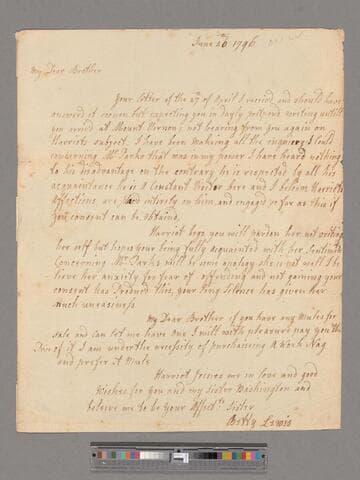 June 26th 1796
My Dear Brother
Your letter of the 27th of April I receivd and should have
answerd it sooner but expecting you in dayly postpond writing untill
you arivd at Mount Vernon; not hearing from you again on
Harriots subject. I have been makeing all the inquiry I Could
concerning Mr Parks that was in my power I have heard nothing
to his disadvantage on the contrary he is respected by all his
acquaintance he is a Constant visitor here and I believe Harriots
affections are plaid intirely on him and engagd so far as this if
your consent can be obtaind.
Harriot begs you will pardon her not writing
her self but hopes your being fully acquainted with her Sentiments
Concerning Mr Parks will be some apology she is not well I be
lieve her anxiety for fear of offending and not gaining your
consent has Produced this, your long Silence has given her
much uneasiness
My Dear Brother if you have any mules for
Sale and can let me have one I will with pleasure pay you the
Price of it I am under the necessity of purchaseing a work Nag
and prefer A Mule
Harriot Joines me in love and good
Wishes for you and my Sister Washington and
beleive me to be your Affectte Sister
Betty Lewis